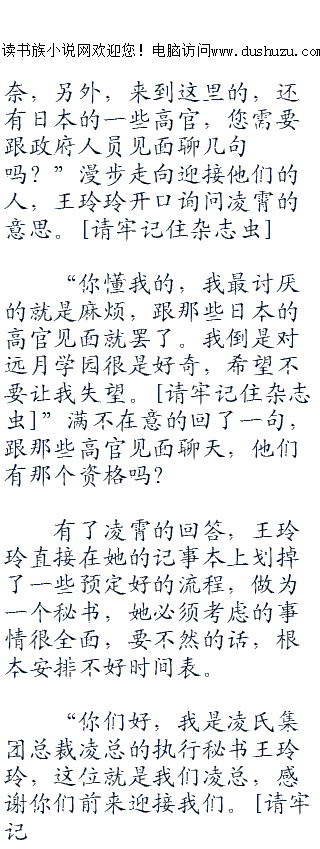 读书族小说网欢迎您！电脑访问www.dushuzu.com
奈，另外，来到这里的，还
有日本的一些高官，您需要
跟政府人员见面聊几句
吗？”漫步走向迎接他们的
人，王玲玲开口询问凌霄的
意思。[请牢记住杂志虫]
“你懂我的，我最讨厌
的就是麻烦，跟那些日本的
高官见面就罢了。我倒是对
远月学园很是好奇，希望不
要让我失望。[请牢记住杂志
虫]”满不在意的回了一句，
跟那些高官见面聊天，他们
有那个资格吗？
有了凌霄的回答，王玲
玲直接在她的记事本上划掉
了一些预定好的流程，做为
一个秘书，她必须考虑的事
情很全面，要不然的话，根
本安排不好时间表。
“你们好，我是凌氏集
团总裁凌总的执行秘书王玲
玲，这位就是我们凌总，感
谢你们前来迎接我们。[请牢
记